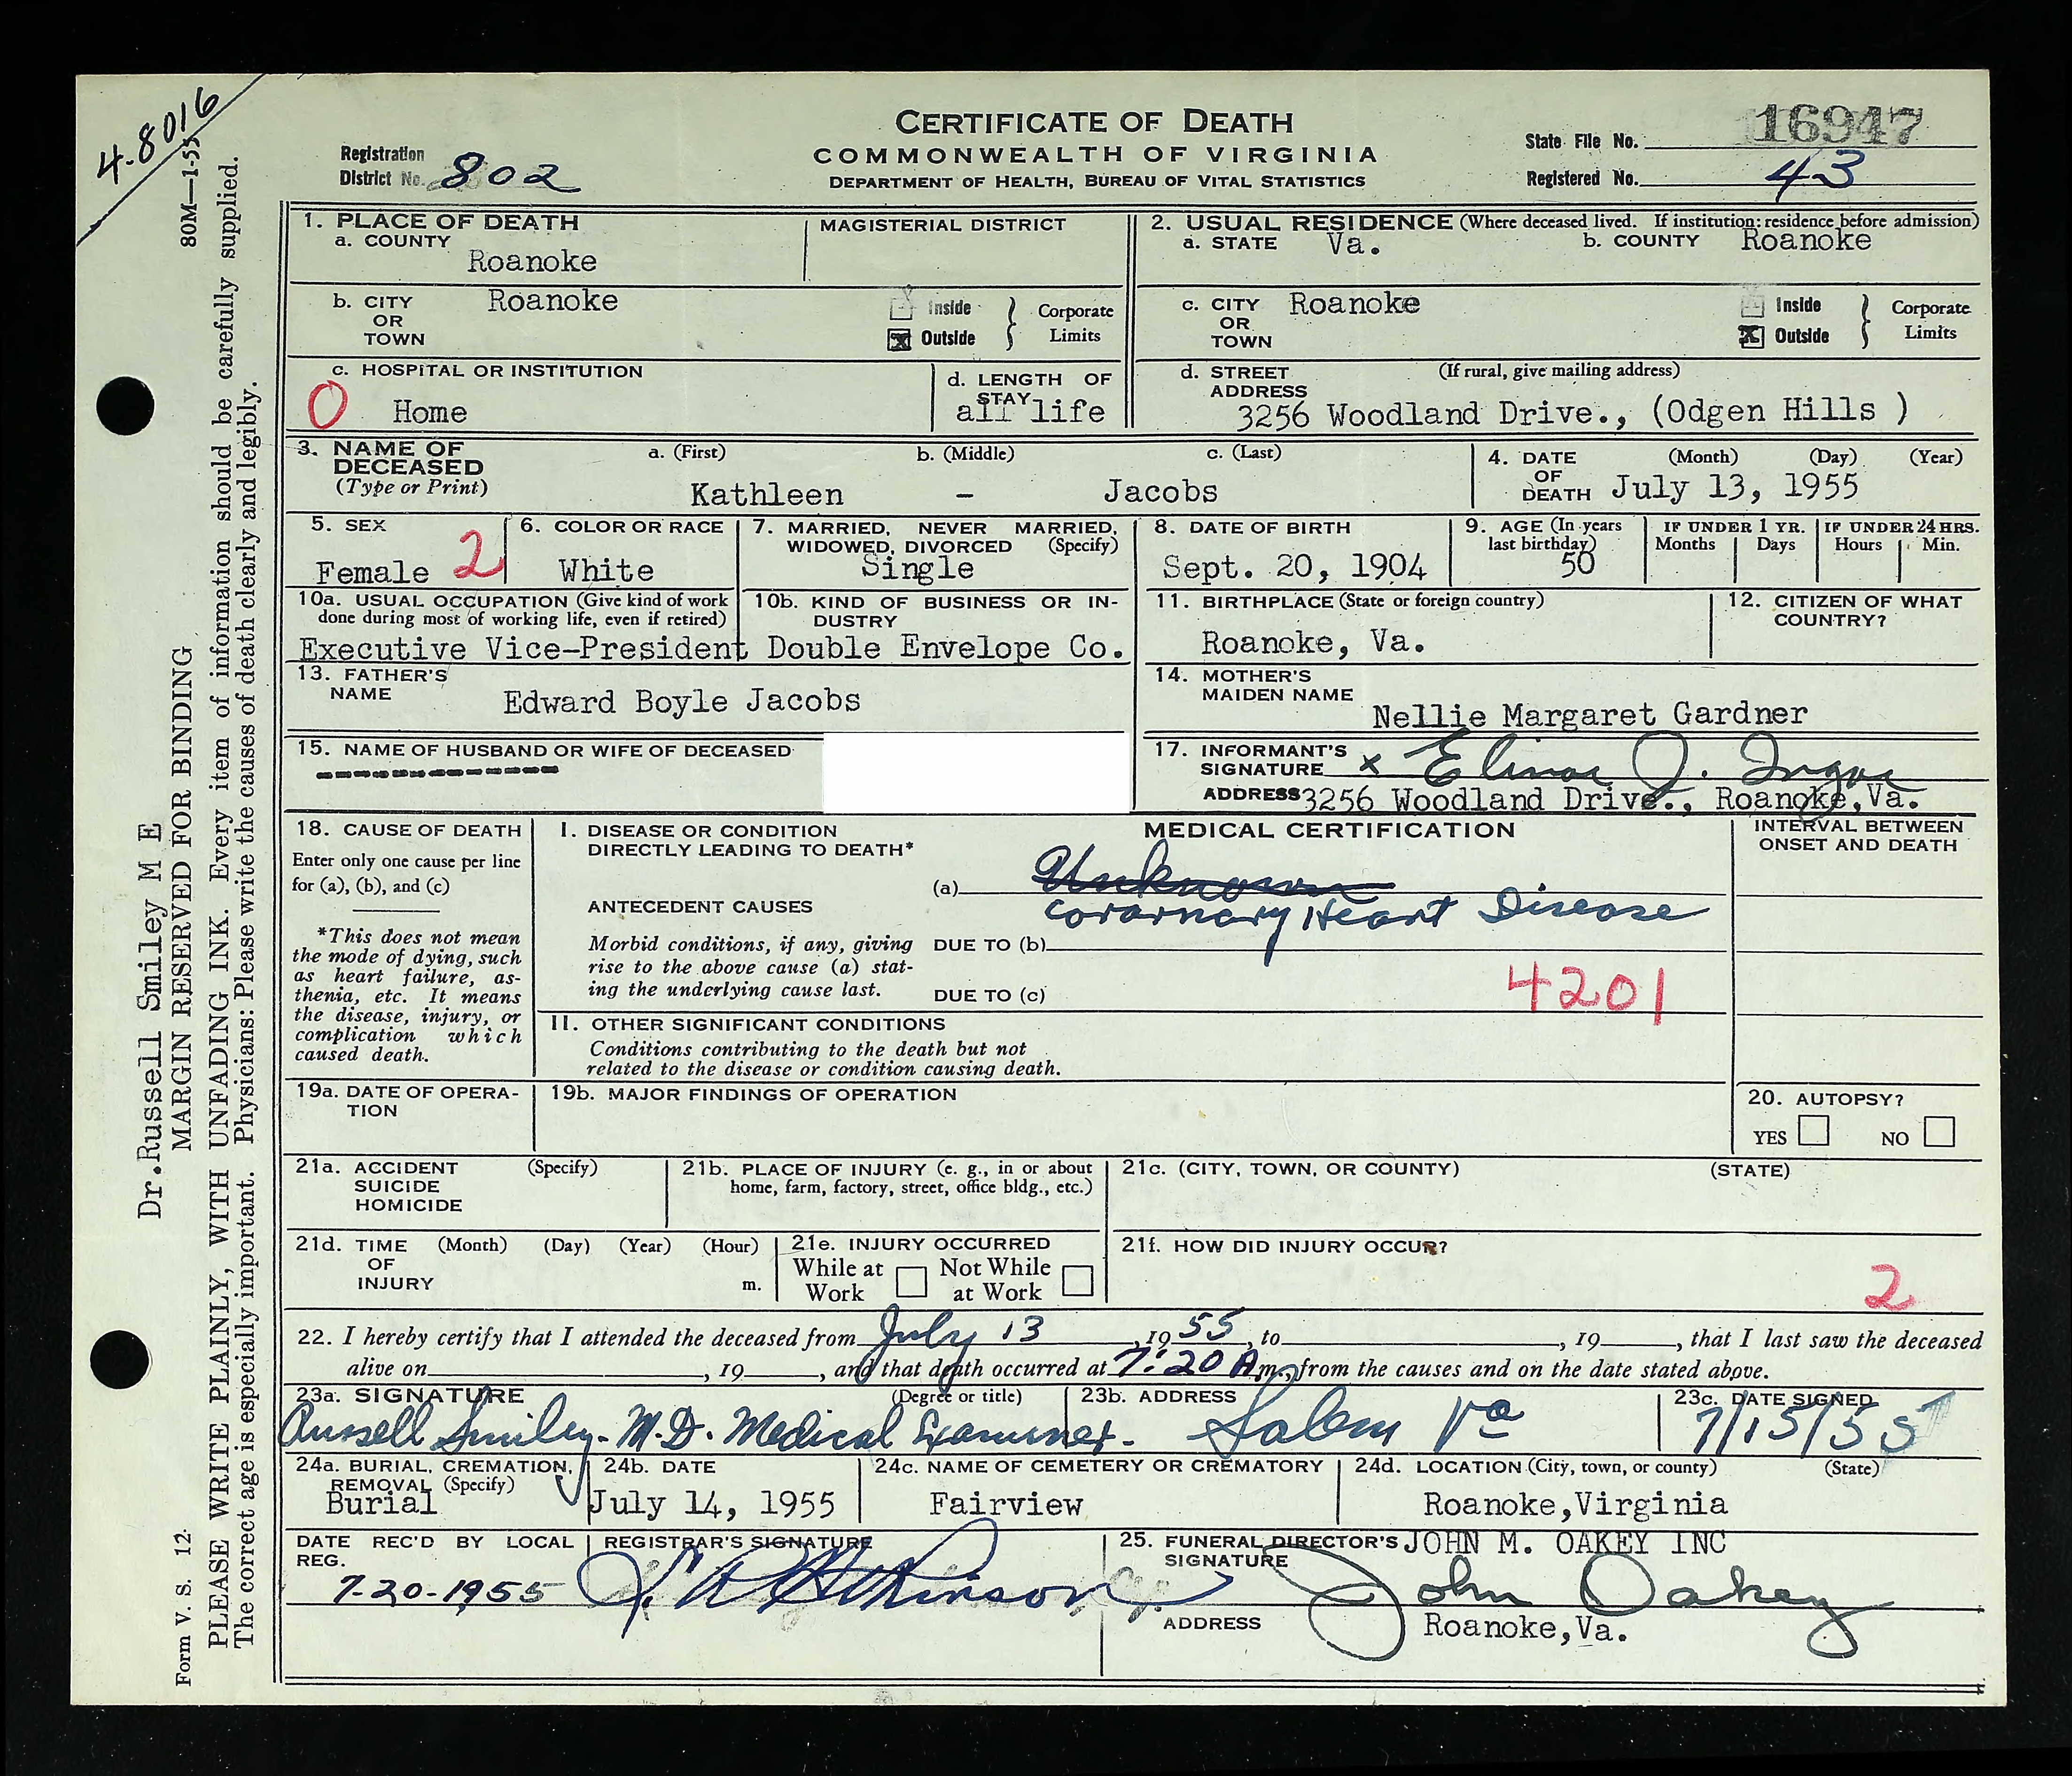 4-8016
80M—1-55
CERTIFICATE OF DEATH
COMMONWEALTH OF VIRGINIA
DEPARTMENT OF HEALTH, BUREAU OF VITAL STATISTICS
Registration
District No. 802
State File No. 16947
Registered No. 43
1. PLACE OF DEATH
a. COUNTY
Roanoke
MAGISTERIAL DISTRICT
2. USUAL RESIDENCE (Where deceased lived. If institution: residence before admission)
a. STATE Va. b. COUNTY Roanoke
b. CITY OR TOWN Roanoke
Inside
Outside
Corporate Limits
c. CITY OR TOWN Roanoke
Inside
Outside
Corporate Limits
c. HOSPITAL OR INSTITUTION
0 Home
d. LENGTH OF STAY
all life
d. STREET ADDRESS (If rural, give mailing address)
3256 Woodland Drive., (Odgen Hills )
3. NAME OF DECEASED
(Type or Print)
a. (First) b. (Middle) c. (Last)
Kathleen - Jacobs
4. DATE OF DEATH (Month) (Day) (Year)
July 13, 1955
5. SEX
Female 2
6. COLOR OR RACE
White
7. MARRIED, NEVER MARRIED,
WIDOWED, DIVORCED (Specify)
Single
8. DATE OF BIRTH
Sept. 20, 1904
9. AGE (In years
last birthday)
50
IF UNDER 1 YR.
Months Days
IF UNDER 24 HRS.
Hours Min.
10a. USUAL OCCUPATION (Give kind of work
done during most of working life, even if retired)
Executive Vice-President
10b. KIND OF BUSINESS OR IN-
DUSTRY
Double Envelope Co.
11. BIRTHPLACE (State or foreign country)
Roanoke, Va.
12. CITIZEN OF WHAT
COUNTRY?
13. FATHER'S
NAME
Edward Boyle Jacobs
14. MOTHER'S
MAIDEN NAME
Nellie Margaret Gardner
15. NAME OF HUSBAND OR WIFE OF DECEASED
-------------
17. INFORMANT'S
SIGNATURE x Elinor J.
ADDRESS 3256 Woodland Drive., Roanoke,Va.
18. CAUSE OF DEATH
Enter only one cause per line
for (a), (b), and (c)
*This does not mean
the mode of dying, such
as heart failure, as-
thenia, etc. It means
the disease, injury, or
complication which
caused death.
MEDICAL CERTIFICATION
INTERVAL BETWEEN
ONSET AND DEATH
I. DISEASE OR CONDITION
DIRECTLY LEADING TO DEATH*
(a) Unknown
Corarnary Heart Disease
ANTECEDENT CAUSES
Morbid conditions, if any, giving
rise to the above cause (a) stat-
ing the underlying cause last.
DUE TO (b)
DUE TO (c)
4201
II. OTHER SIGNIFICANT CONDITIONS
Conditions contributing to the death but not
related to the disease or condition causing death.
19a. DATE OF OPERA-
TION
19b. MAJOR FINDINGS OF OPERATION
20. AUTOPSY?
YES NO
21a. ACCIDENT (Specify)
SUICIDE
HOMICIDE
21b. PLACE OF INJURY (e. g., in or about
home, farm, factory, street, office bldg., etc.)
21c. (CITY, TOWN, OR COUNTY) (STATE)
21d. TIME (Month) (Day) (Year) (Hour)
OF
INJURY m.
21e. INJURY OCCURRED
While at Work
Not While at Work
21f. HOW DID INJURY OCCUR?
2
22. I hereby certify that I attended the deceased from July 13, 1955, to , 19 , that I last saw the deceased
alive on , 19 , and that death occurred at 7:20 A m., from the causes and on the date stated above.
23a. SIGNATURE (Degree or title)
Russell Smiley - M.D. Medical Examiner.
23b. ADDRESS
Salem Va
23c. DATE SIGNED
7/15/55
24a. BURIAL, CREMATION,
REMOVAL (Specify)
Burial
24b. DATE
July 14, 1955
24c. NAME OF CEMETERY OR CREMATORY
Fairview
24d. LOCATION (City, town, or county) (State)
Roanoke,Virginia
DATE REC'D BY LOCAL
REG.
7-20-1955
REGISTRAR'S SIGNATURE
25. FUNERAL DIRECTOR'S JOHN M. OAKEY INC
SIGNATURE John Oakey
ADDRESS Roanoke,Va.
Dr.Russell Smiley M E
MARGIN RESERVED FOR BINDING
PLEASE WRITE PLAINLY, WITH UNFADING INK. Every item of information should be carefully supplied.
The correct age is especially important. Physicians: Please write the causes of death clearly and legibly.
Form V. S. 12.